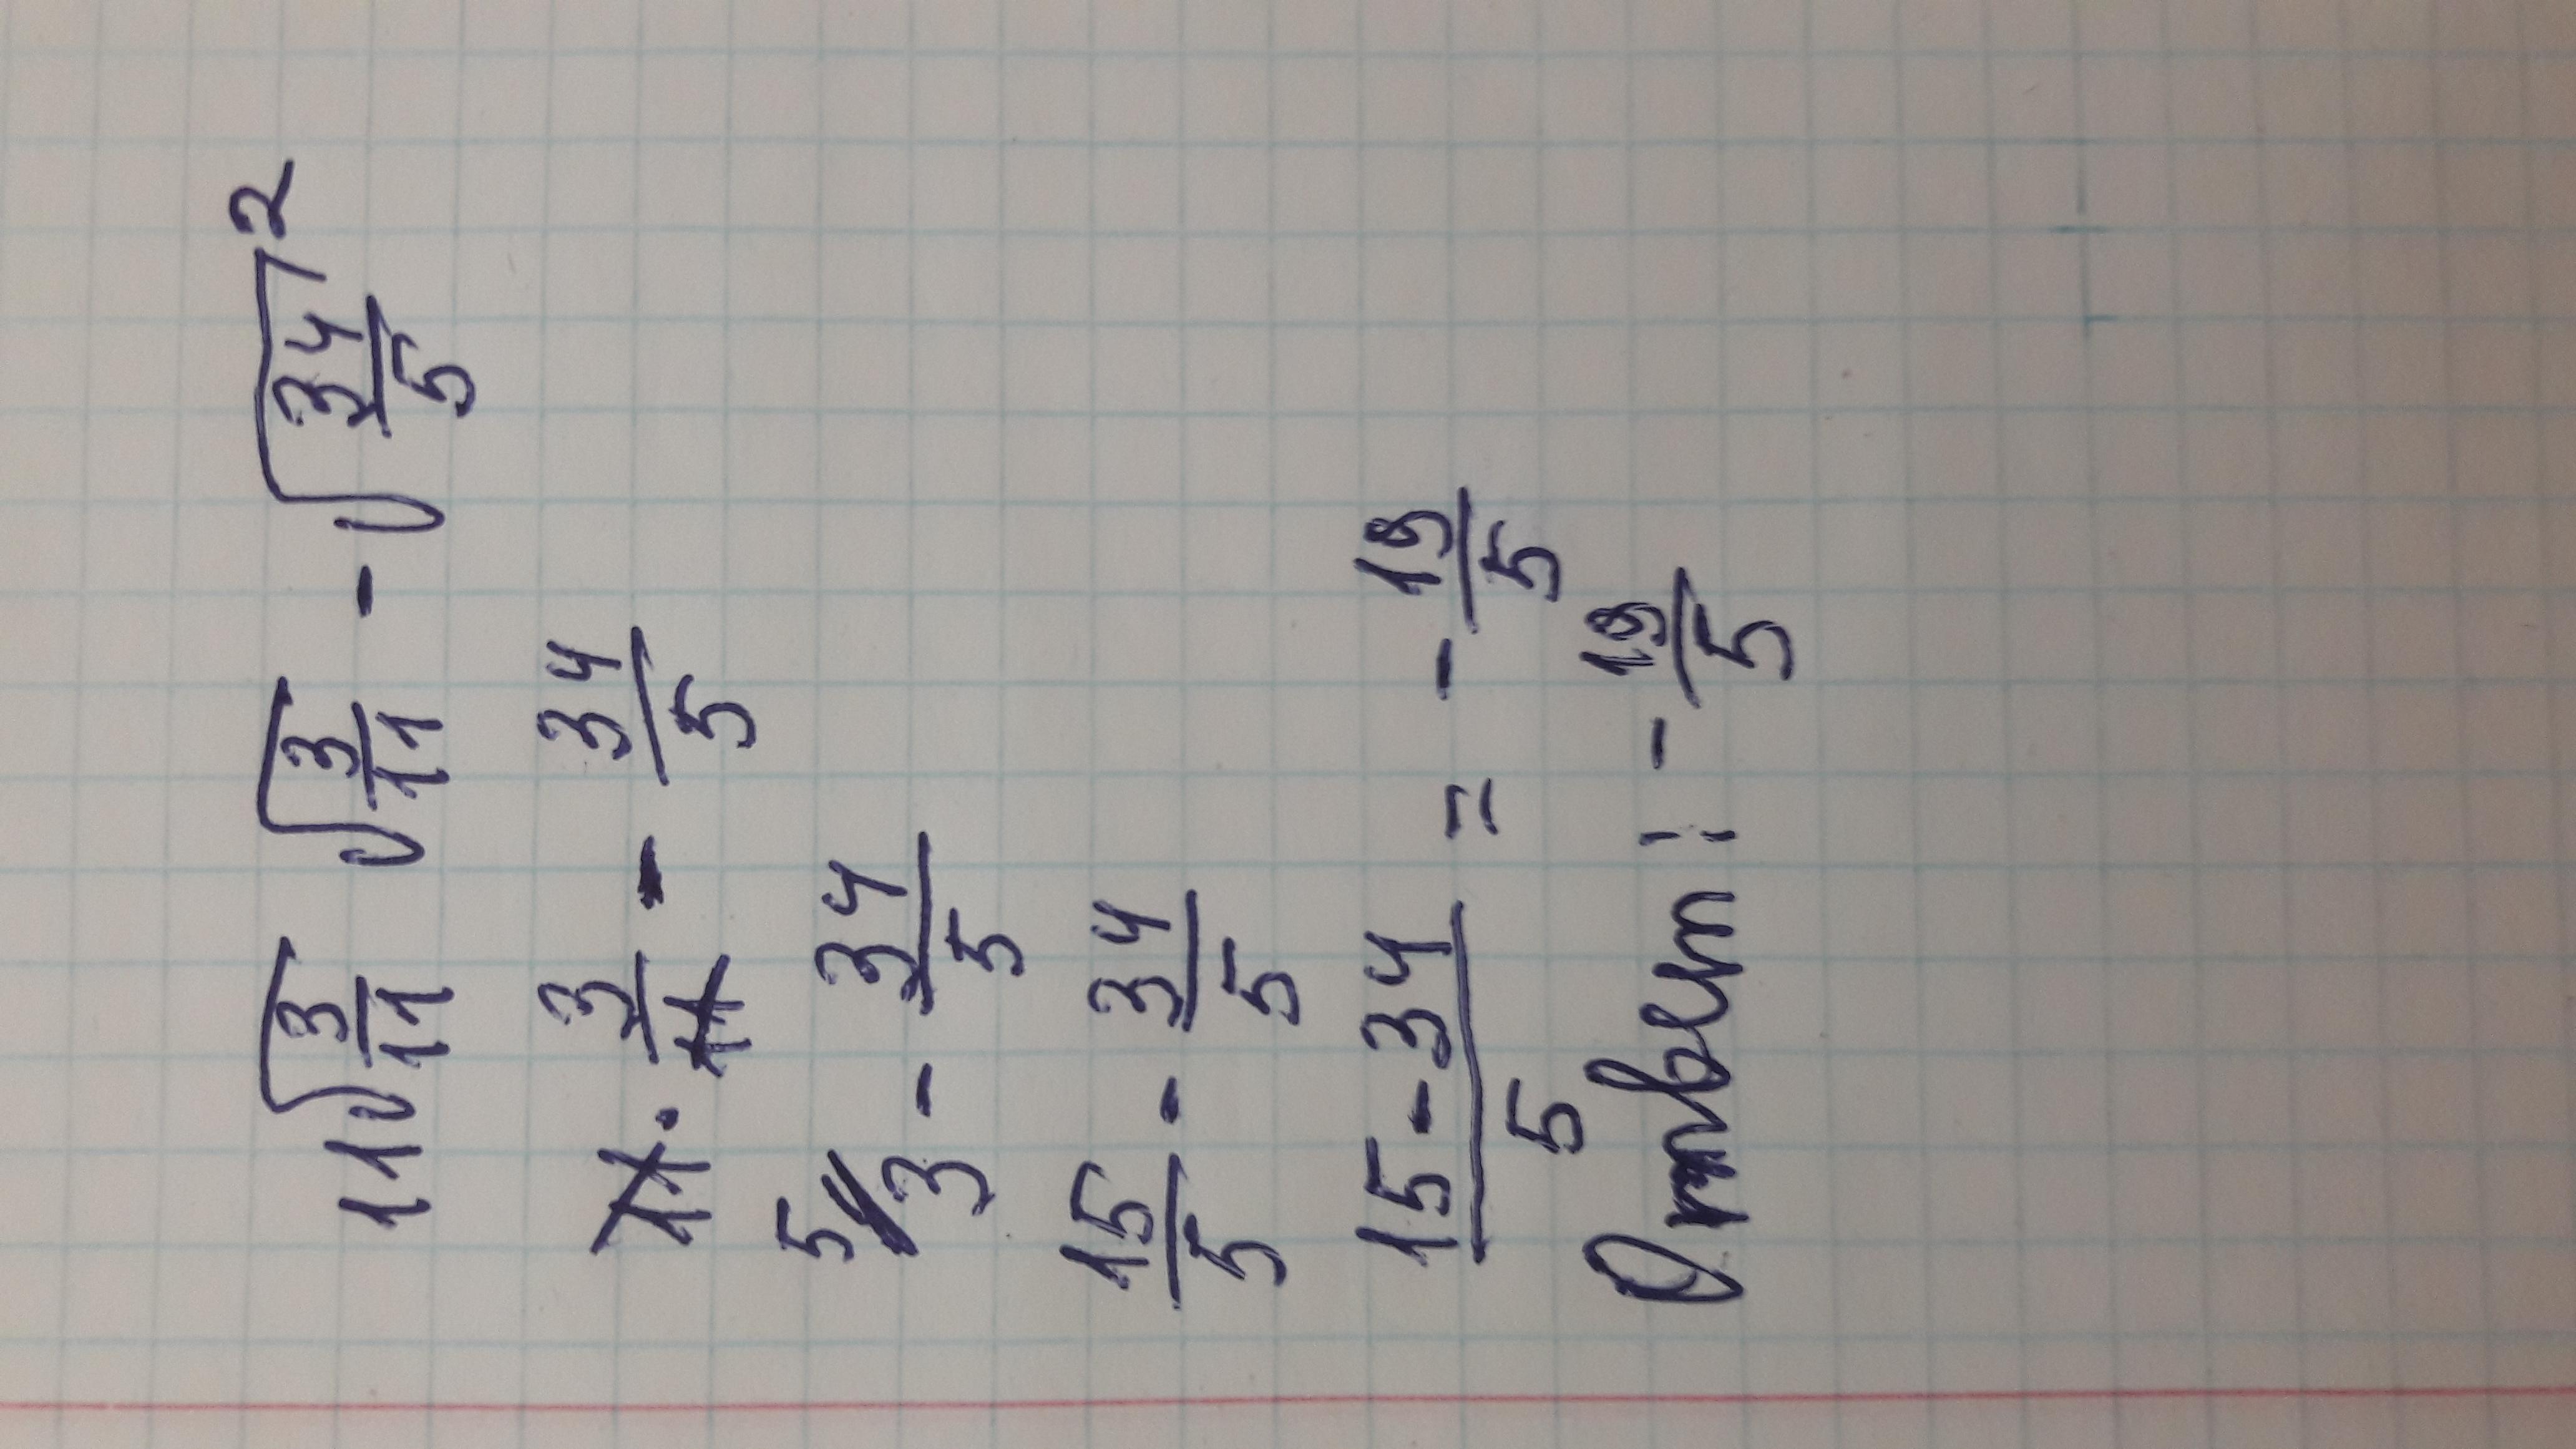 11√(3/11) √(3/11) - √(34/5)²
11 · 3/11 - 34/5
5/ 3 - 34/5
15/5 - 34/5
(15-34)/5 = - 19/5
Ответ: - 19/5